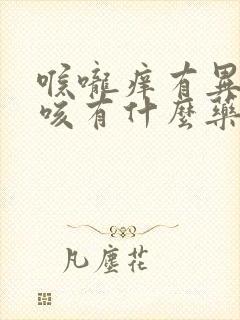 喉嚨痒有異
咳有什麼藥
凡塵花